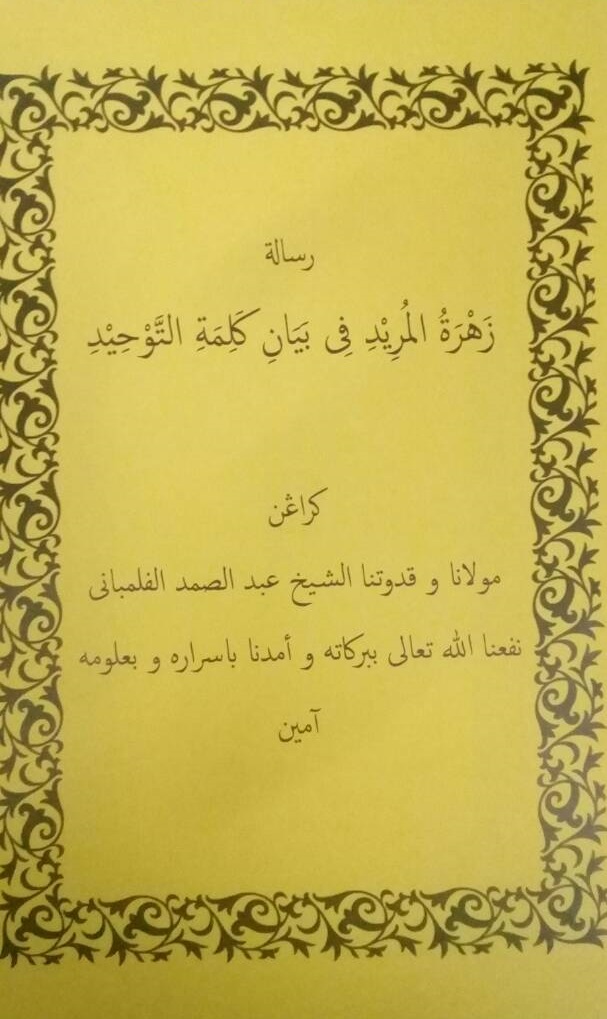 رسالة
زَهْرَةُ المُرِيْدِ فِى بَيَانِ كَلِمَةِ التَّوْحِيْدِ
كراڠن
مولانا و قدوتنا الشيخ عبد الصمد الفلمبانى
نفعنا الله تعالى ببركاته و أمدنا باسراره و بعلومه
آمين